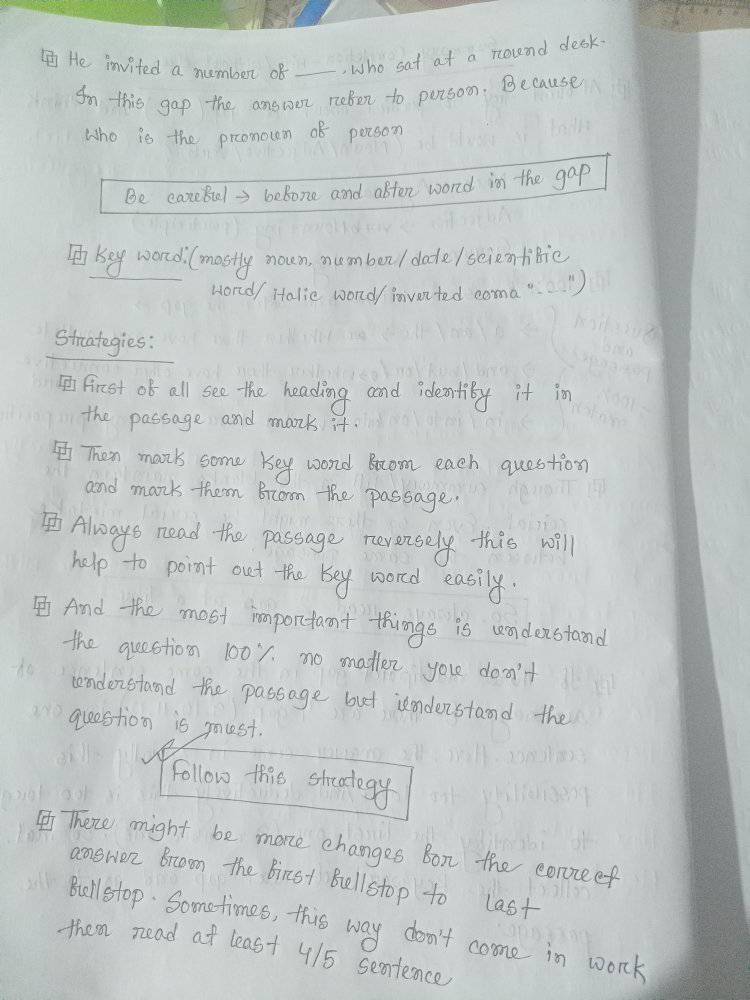 He invited a number of ___. Who sat at a round desk.
In this gap the answer refer to person. Because
who is the pronoun of person
Be careful → before and after word in the gap
Key word:(mostly noun, number/date/scientific
word/Italic word/inverted coma "....")
Strategies:
First of all see the heading and identify it in
the passage and mark it.
Then mark some key word from each question
and mark them from the passage.
Always read the passage reversely this will
help to point out the key word easily.
And the most important things is understand
the question 100% no matter you don't
understand the passage but understand the
question is must.
Follow this strategy
There might be more changes for the correct
answer from the first fullstop to last
fullstop. Sometimes, this way don't come in work
then read at least 4/5 sentence